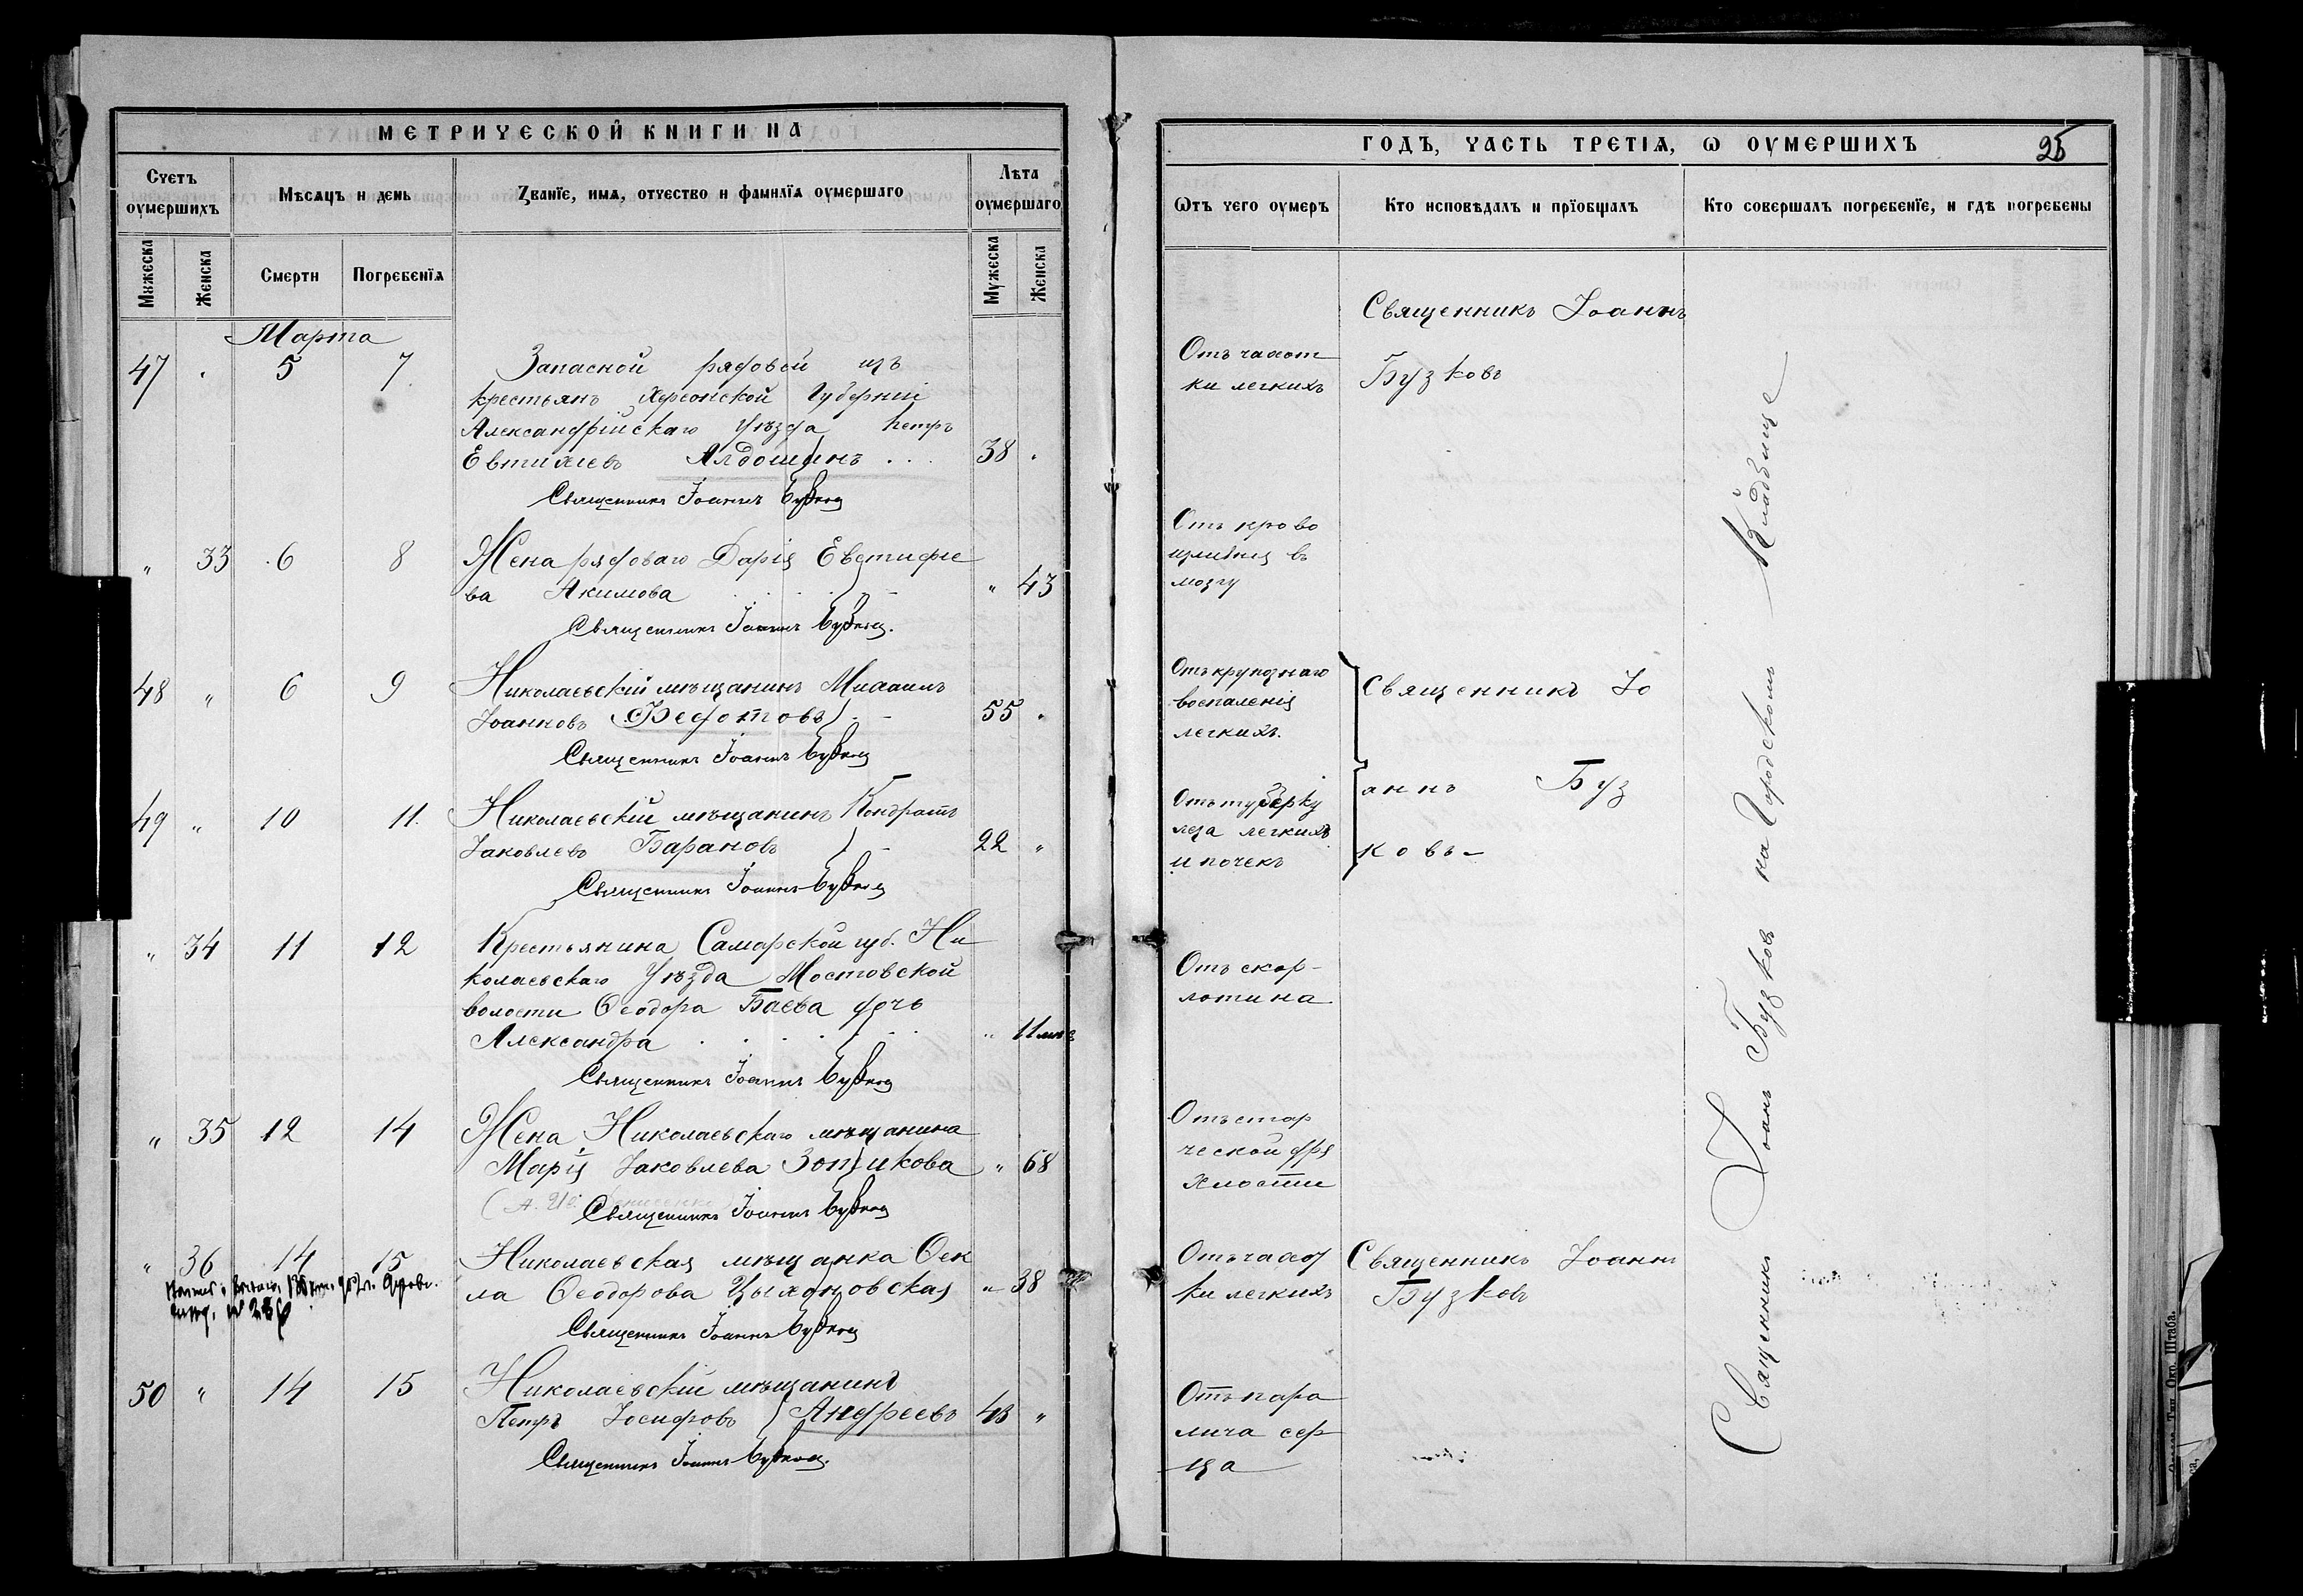 МЕТРИЧЕСКОЙ КНИГИ НА
Счетъ оумершихъ
Мѣсяцъ и день
Званїе, имя, отчество и фамилїя оумершаго
Лѣта оумершаго
Мужеска
Женска
Смерти
Погребенїя
Мужеска
Женска
Марта
47 5 7 Запасной рядовой изъ
крестьянъ Херсонской Губерніи
Александрійскаго Уѣзда Петръ
Евтихіевъ Алдошинъ . . . 38
Священникъ Іоаннъ Бузковъ
" 33 6 8 Жена рядоваго Дарія Евстифіе
ва Акимова " 43
Священникъ Іоаннъ Бузковъ.
48 " 6 9 Николаевскій мѣщанинъ Михаилъ
Іоанновъ Ѳедотовъ 55 "
Священникъ Іоаннъ Бузковъ
49 " 10 11 Николаевскій мѣщанинъ Кондратъ
Іаковлевъ Барановъ 22 "
Священникъ Іоаннъ Бузковъ
" 34 11 12 Крестьянина Самарской губ. Ни
колаевскаго Уѣзда Мостовской
волости Ѳеодора Баева дочь
Александра " 11 мѣс
Священникъ Іоаннъ Бузковъ
" 35 12 14 Жена Николаевскаго мѣщанина
Марія Іаковлева Зотикова " 68
Священникъ Іоаннъ Бузковъ
" 36 14 15 Николаевская мѣщанка Ѳек
ла Ѳеодорова Цыхоновская " 38
Священникъ Іоаннъ Бузковъ
50 " 14 15 Николаевскій мѣщанинъ
Петръ Іосифовъ Андреевъ 43 "
Священникъ Іоаннъ Бузковъ.
ГОДЪ, ЧАСТЬ ТРЕТІЯ, Ѡ ОУМЕРШИХЪ
25
Ѿтъ чего оумеръ
Кто исповѣдалъ и прїобщалъ
Кто совершалъ погребенїе, и гдѣ погребены
Отъ чахот
ки легкихъ
Священникъ Іоаннъ
Бузковъ
Отъ крово
изліянія въ
мозгу
Отъ крупознаго
воспаленія
легкихъ.
Священникъ Іо
аннъ Буз
ковъ
Отъ туберку
леза легкихъ
и почекъ
Отъ скар-
лотина
Отъ стар
ческой дря
хлости
Отъ чахот
ки легкихъ
Священникъ Іоаннъ
Бузковъ
Отъ пара
лича сер
дца
Священникъ Іоаннъ Бузковъ на Городскомъ Кладбище